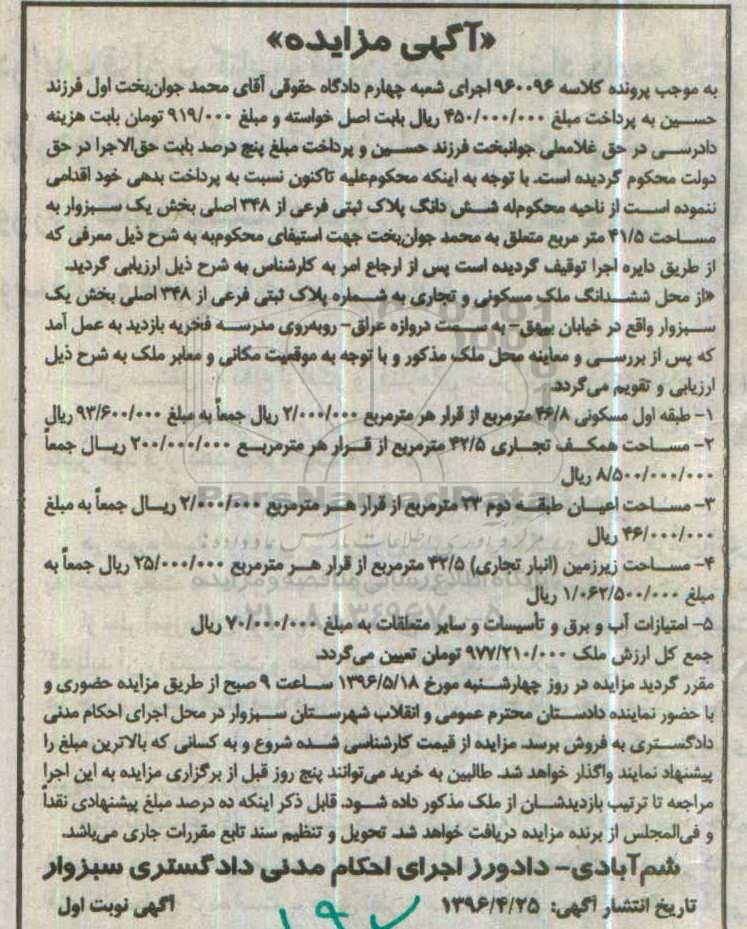 «آگهی مزایده»
به موجب پرونده کلاسه ۹۶۰۰۹۶ اجرای شعبه چهارم دادگاه حقوقی آقای محمد جوان‌بخت اول فرزند
حسین به پرداخت مبلغ ۴۵۰/۰۰۰/۰۰۰ ریال بابت اصل خواسته و مبلغ ۹۱۹/۰۰۰ تومان بابت هزینه
دادرسی در حق غلامعلی جوانبخت فرزند حسین و پرداخت مبلغ پنج درصد بابت حق‌الاجرا در حق
دولت محکوم گردیده است. با توجه به اینکه محکوم‌علیه تاکنون نسبت به پرداخت بدهی خود اقدامی
ننموده است از ناحیه محکوم‌له شش دانگ پلاک ثبتی فرعی از ۳۴۸ اصلی بخش یک سبزوار به
مساحت ۴۱/۵ متر مربع متعلق به محمد جوان‌بخت جهت استیفای محکوم‌به به شرح ذیل معرفی که
از طریق دایره اجرا توقیف گردیده است پس از ارجاع امر به کارشناس به شرح ذیل ارزیابی گردید.
«از محل ششدانگ ملک مسکونی و تجاری به شماره پلاک ثبتی فرعی از ۳۴۸ اصلی بخش یک
سبزوار واقع در خیابان بیهق- به سمت دروازه عراق- روبه‌روی مدرسه فخریه بازدید به عمل آمد
که پس از بررسی و معاینه محل ملک مذکور و با توجه به موقعیت مکانی و معابر ملک به شرح ذیل
ارزیابی و تقویم می‌گردد.
۱- طبقه اول مسکونی ۴۶/۸ مترمربع از قرار هر مترمربع ۲/۰۰۰/۰۰۰ ریال جمعاً به مبلغ ۹۳/۶۰۰/۰۰۰ ریال
۲- مساحت همکف تجاری ۴۲/۵ مترمربع از قرار هر مترمربع ۲۰۰/۰۰۰/۰۰۰ ریال جمعاً
۸/۵۰۰/۰۰۰/۰۰۰ ریال
۳- مساحت اعیان طبقه دوم ۲۳ مترمربع از قرار هر مترمربع ۲/۰۰۰/۰۰۰ ریال جمعاً به مبلغ
۴۶/۰۰۰/۰۰۰ ریال
۴- مساحت زیرزمین (انبار تجاری) ۴۲/۵ مترمربع از قرار هر مترمربع ۲۵/۰۰۰/۰۰۰ ریال جمعاً به
مبلغ ۱/۰۶۲/۵۰۰/۰۰۰ ریال
۵- امتیازات آب و برق و تأسیسات و سایر متعلقات به مبلغ ۷۰/۰۰۰/۰۰۰ ریال
جمع کل ارزش ملک ۹۷۷/۲۱۰/۰۰۰ تومان تعیین می‌گردد.
مقرر گردید مزایده در روز چهارشنبه مورخ ۱۳۹۶/۵/۱۸ ساعت ۹ صبح از طریق مزایده حضوری و
با حضور نماینده دادستان محترم عمومی و انقلاب شهرستان سبزوار در محل اجرای احکام مدنی
دادگستری به فروش برسد. مزایده از قیمت کارشناسی شده شروع و به کسانی که بالاترین مبلغ را
پیشنهاد نمایند واگذار خواهد شد. طالبین به خرید می‌توانند پنج روز قبل از برگزاری مزایده به این اجرا
مراجعه تا ترتیب بازدیدشان از ملک مذکور داده شود. قابل ذکر اینکه ده درصد مبلغ پیشنهادی نقداً
و فی‌المجلس از برنده مزایده دریافت خواهد شد. تحویل و تنظیم سند تابع مقررات جاری می‌باشد.
شم‌آبادی- دادورز اجرای احکام مدنی دادگستری سبزوار
تاریخ انتشار آگهی: ۱۳۹۶/۴/۲۵ آگهی نوبت اول
ParsNamadData